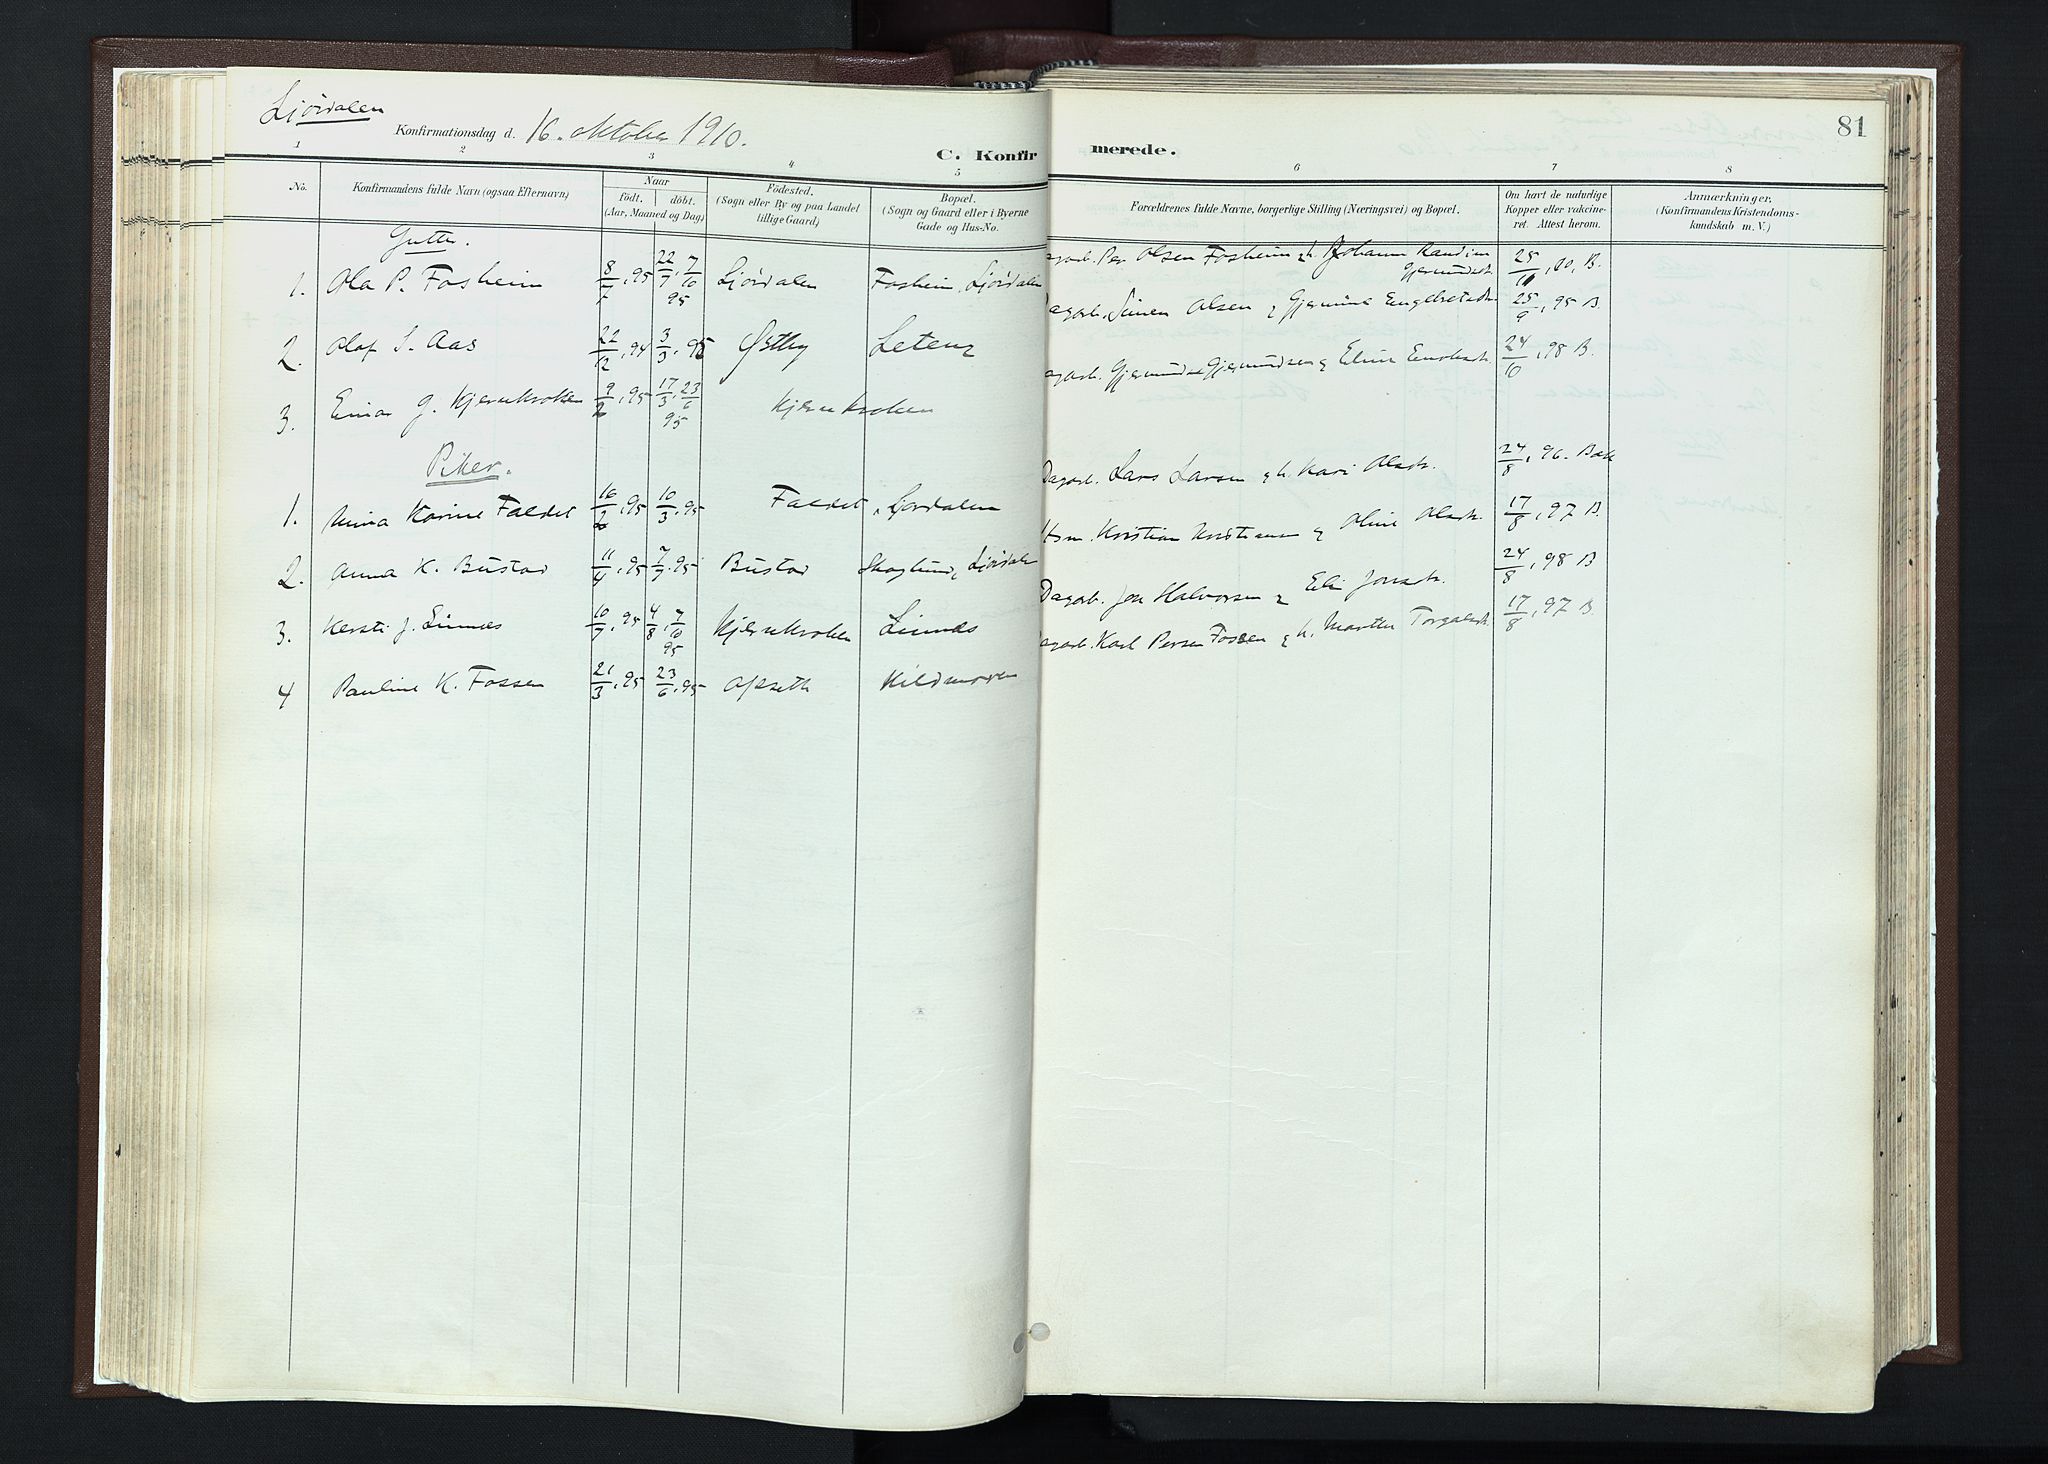 Ljørdalen
Konfirmationsdag d. 16. oktober 1910.
81
C. Konfirmerede.
1 2 3 4 5 6 7 8
No.
Konfirmandens fulde Navn (ogsaa Efternavn)
Naar
født. døbt.
(Aar, Maaned og Dag)
Fødested.
(Sogn eller By og paa Landet
tillige Gaard)
Bopæl.
(Sogn og Gaard eller i Byerne
Gade og Hus-No.
Forældrenes fulde Navne, borgerlige Stilling (Næringsvei) og Bopæl.
Om havt de naturlige
Kopper eller vakcine-
ret. Attest herom.
Anmærkninger,
(Konfirmandens Kristendoms-
kundskab m. V.)
Gutter.
1. Ola P. Fosheim 8/7, 95 22/7, 7/10 95 Ljørdalen Fosheim, Ljørdalen Per Olsen Fosheim h. Johanne Randine Gjermundsd. 25/, 00, B.
2. Olaf S. Aas 22/12, 94 3/3, 95 Østby Leteng Dagarb. Simen Olsen Gjermine Engebretsd. 25/9, 95 B
3. Einar G. Kjernkroken 9/2, 95 17/3, 23/6 95 Kjernkroken Gjermund Gjermundsen Eline 24/, 98 B.
Piker.
1. Karine Faldet 16/2, 95 10/3, 95 Faldet, Ljørdalen Dagarb. Lars Larsen h. Kari Olsd. 24/8, 96. Bak
2. Anna K. Bustad 11/4, 95 7/7, 95 Bustad Skoglund, Ljørdalen Hsm. Kristian Kristiansen Oline Olsd. 17/8, 97 B.
3. Kersti J. Linnes 10/7, 95 4/8, 7/10 95 Kjernkroken Linnes Dagarb. Jon Halvorsen Eli Jonsd. 24/8, 98 B
4 Pauline K. Fossen 21/3, 95 23/6, 95 Karl Persen Fossen h. Marthe Torgalsd. 17/8, 97 B.